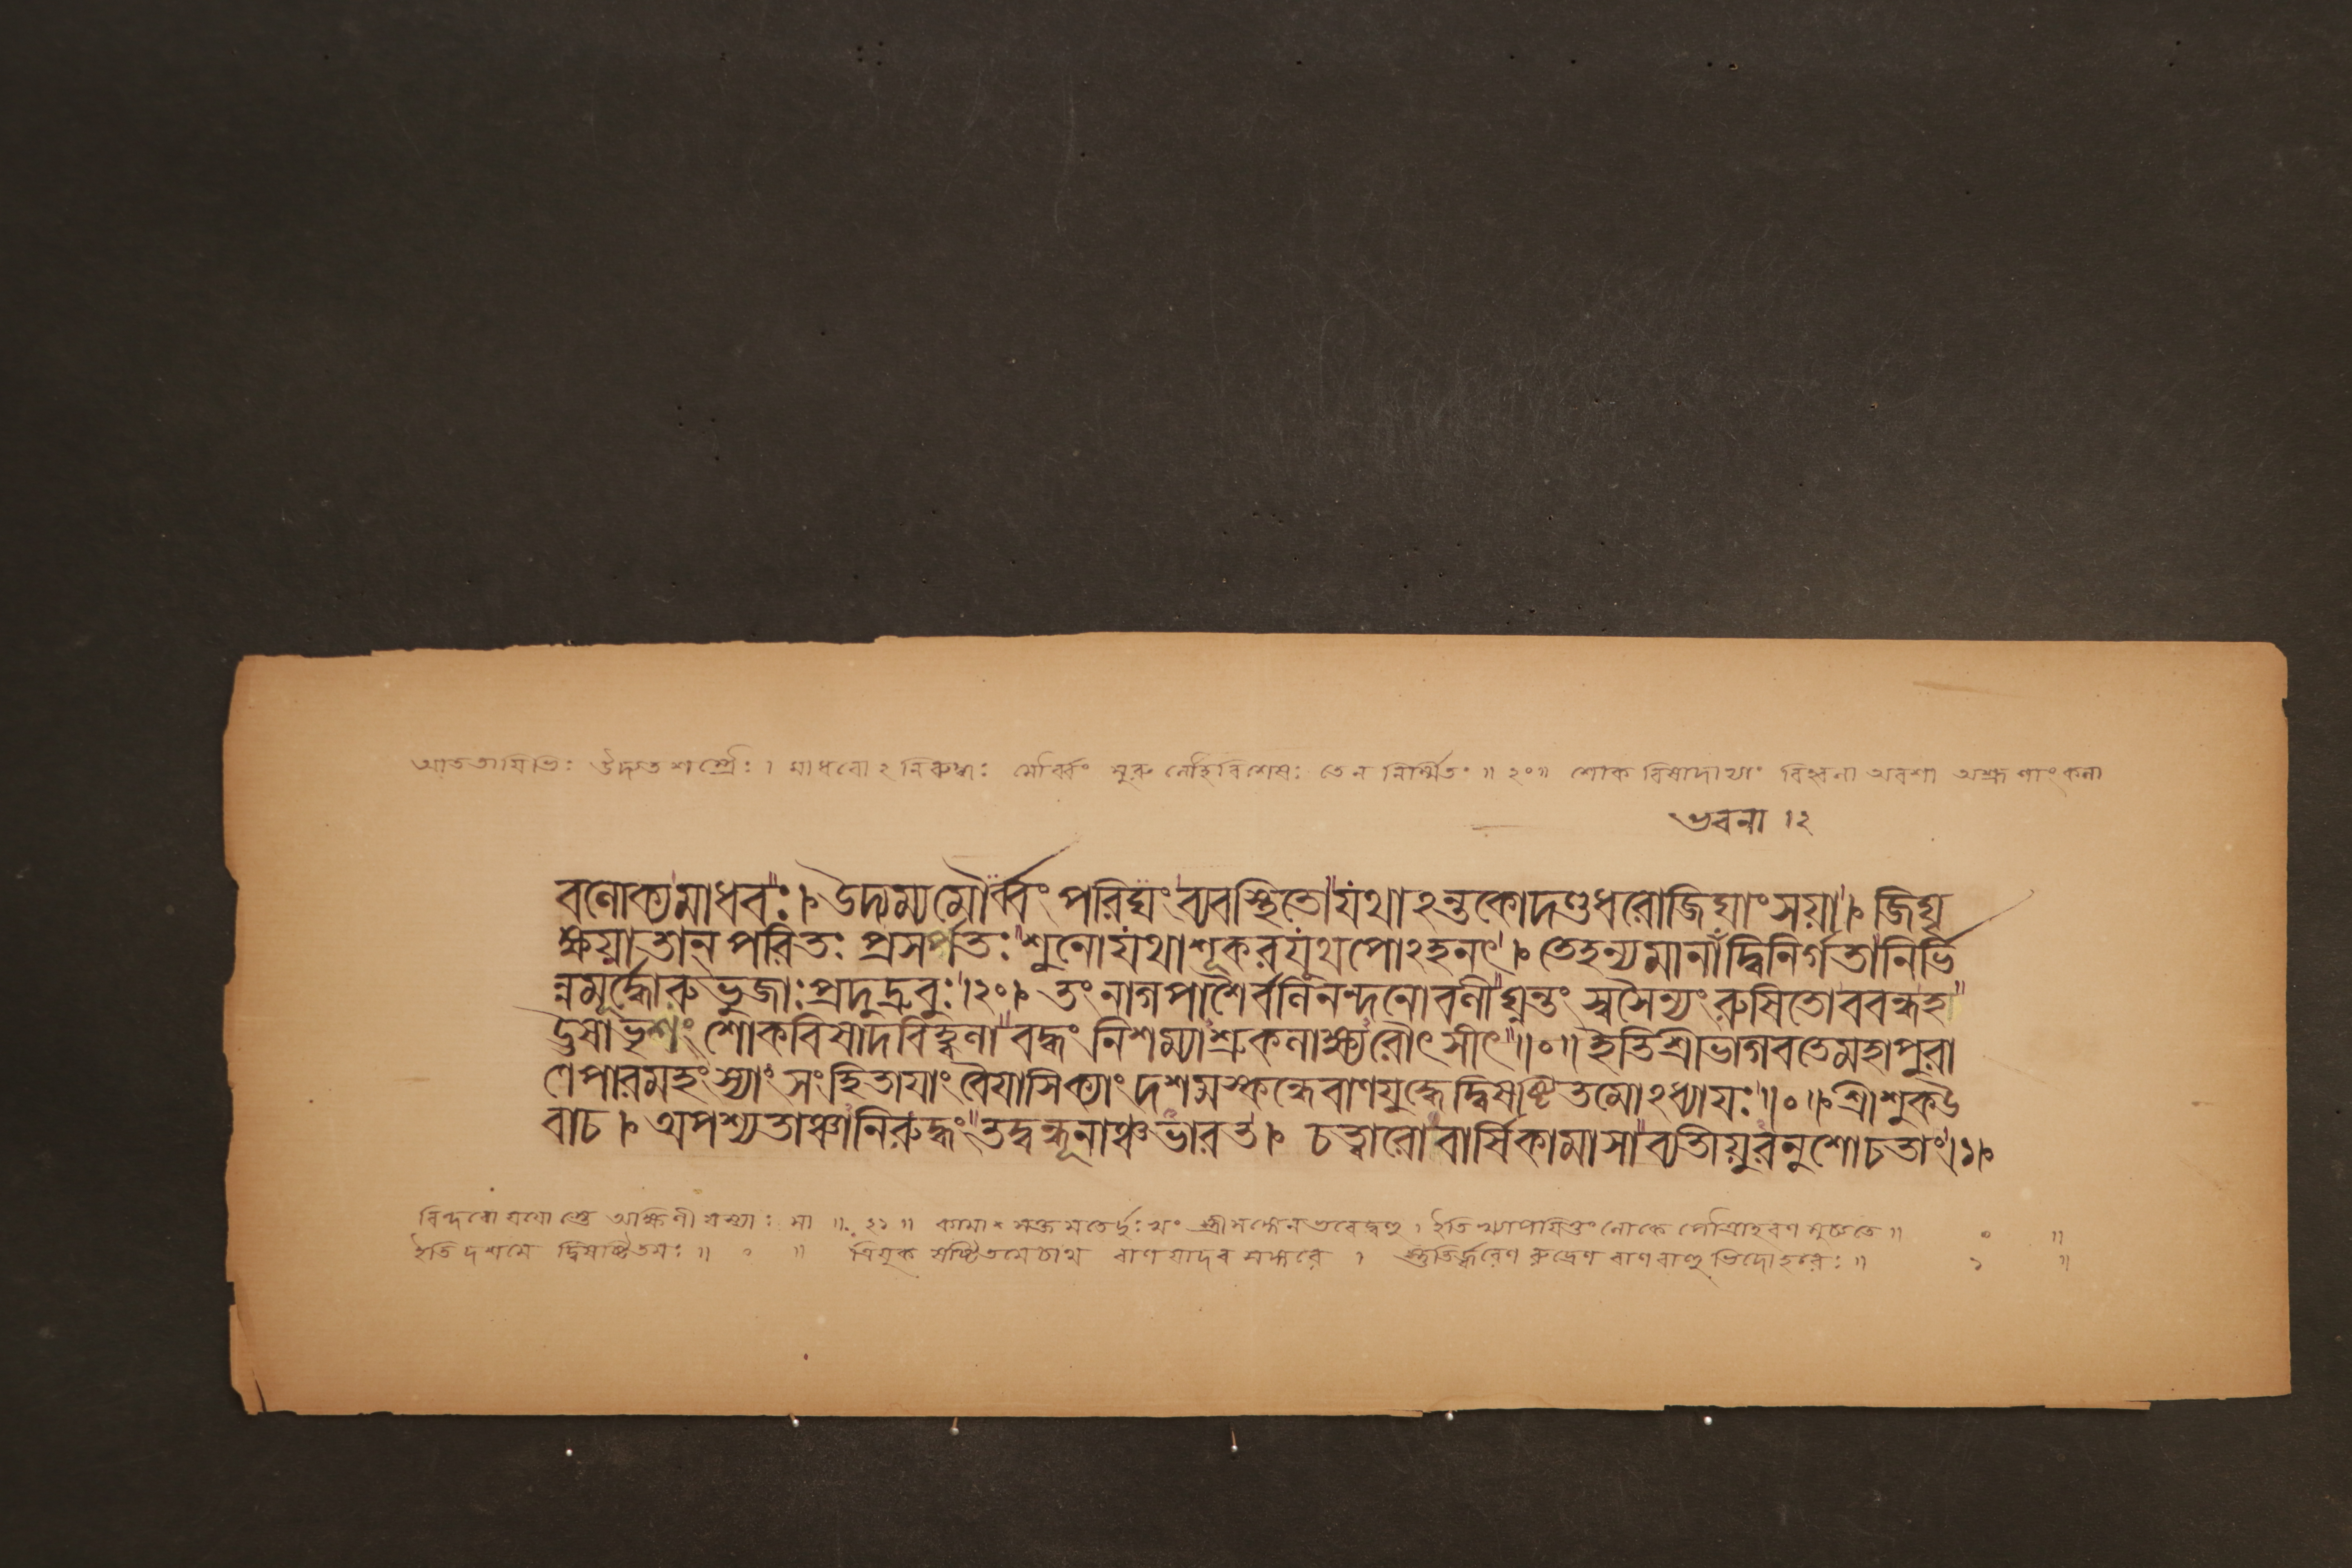 আততায়িভিঃ উদ্যতশস্ত্রৈঃ । মাধবোঽনিরুদ্ধঃ মৌর্ব্বং মুরু লৌহবিশেষঃ তেন নির্ম্মিতং ॥ ২০॥ শোক বিষাদাভ্যাং বিহ্বলা অবশা অশ্রূণাং কলা
ভবনা ।২
বলোক্যমাধবঃ । উদ্যম্যমৌর্ব্বং পরিঘং ব্যবস্থিতো যথাঽন্তকোদণ্ডধরোজিঘাংসয়া । জিঘৃ
ক্ষয়া তান্ পরিতঃ প্রসর্পতঃ শুনোযথাশূকরযূথপোঽহনৎ । তেহন্যমানা দ্বিনির্গতানির্ভি
ন্নমূর্দ্ধোরুভুজাঃ প্রদুদ্রুবুঃ ।২০। তং নাগপাশৈর্ব্বলিনন্দনোবলী ঘ্নন্তং স্বসৈন্যং রুষিতোববন্ধহ
উষাভৃশং শোকবিষাদবিহ্বলা বদ্ধং নিশম্যাশ্রুকলাক্ষ্যরৌৎসীৎ ॥০॥ ইতিশ্রীভাগবতেমহাপুরা
ণেপারমহংস্যাং সংহিতায়াং বৈয়াসিক্যাং দশমস্কন্ধেবাণযুদ্ধেদ্বিষষ্টিতমোঽধ্যায়ঃ ॥০॥ শ্রীশুকউ
বাচ । অপশ্যতাঞ্চানিরুদ্ধং তদ্বন্ধূনাঞ্চভারত । চত্বারোবার্ষিকামাসাব্যতীয়ুরনুশোচতাং ।১।
বিন্দবো যয়োস্তে অক্ষিণী যস্যাঃ সা ॥ ২১॥ দুঃখং ইতি লোকে পৌত্রাহরণ মুচ্যতে ॥ ০ ॥
ইতি দশমে দ্বিষষ্টিতমঃ ॥ ০ ॥ ত্রিযুক ষষ্টিতমেচাথ বাণ যাদব সঙ্গরে । স্তুতির্জ্বরেণ রুদ্রেণ বাণবাহু ভিদোহরেঃ ॥ ১ ॥